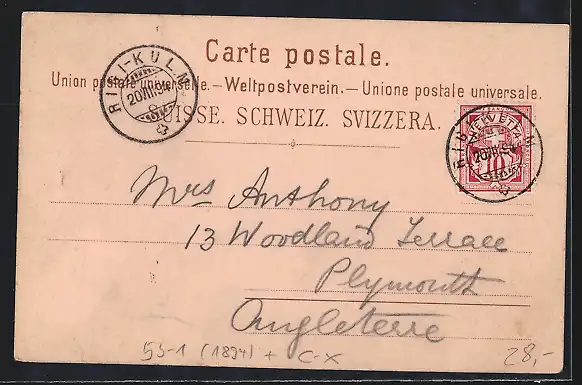 Carte postale.
Union postale universelle.—Weltpostverein.—Unione postale universale.
SUISSE. SCHWEIZ. SVIZZERA.
RIGI-KULM
20 VIII 94
HELVETIA
10
RIGI-KULM
20 VIII 94
Mrs Anthony
13 Woodland Terrace
Plymouth
Angleterre
53-1 (1894) + C-X
28,-